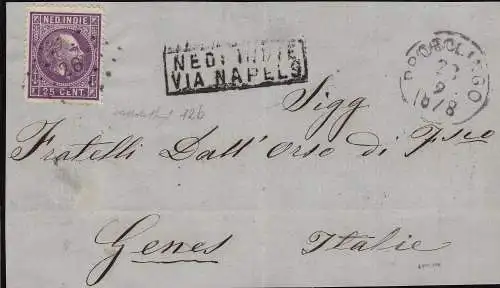 NED. INDIE
26
25 CENT.
NED: INDIE
VIA NAPELS
PROBOLINGO
23
9
1878
12b
Sigg
Fratelli Dall'Orso di Fsco
Genes Italie